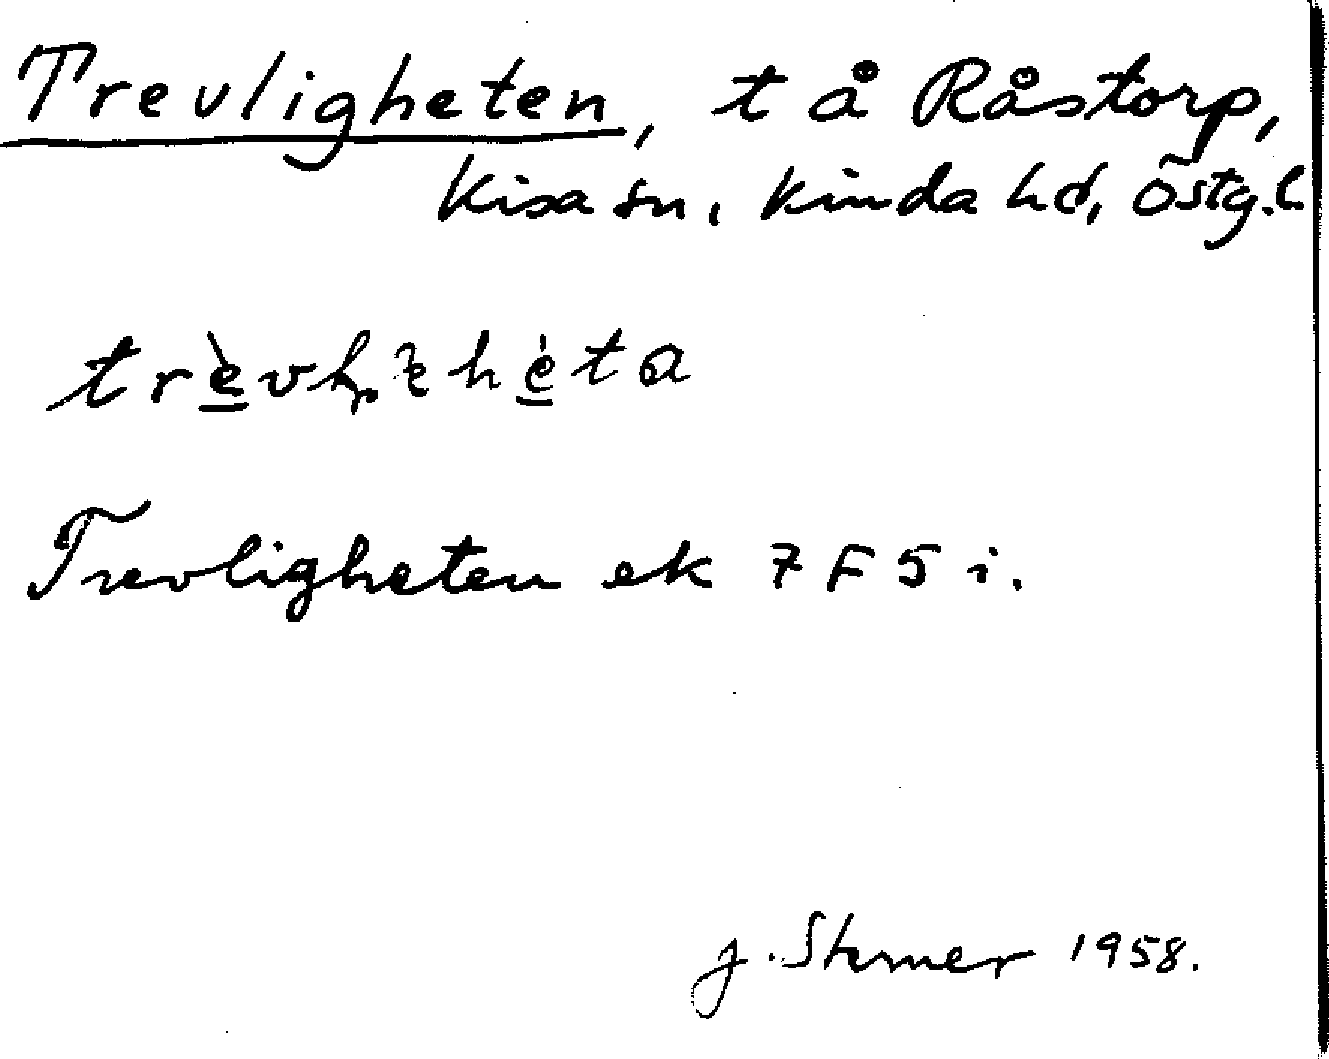 Trevligheten, t å Råstorp,
Kisa sn, Kinda hd, Östg.l.
Trevligheten ek 7 F 5 i.
J. Sterner 1958.